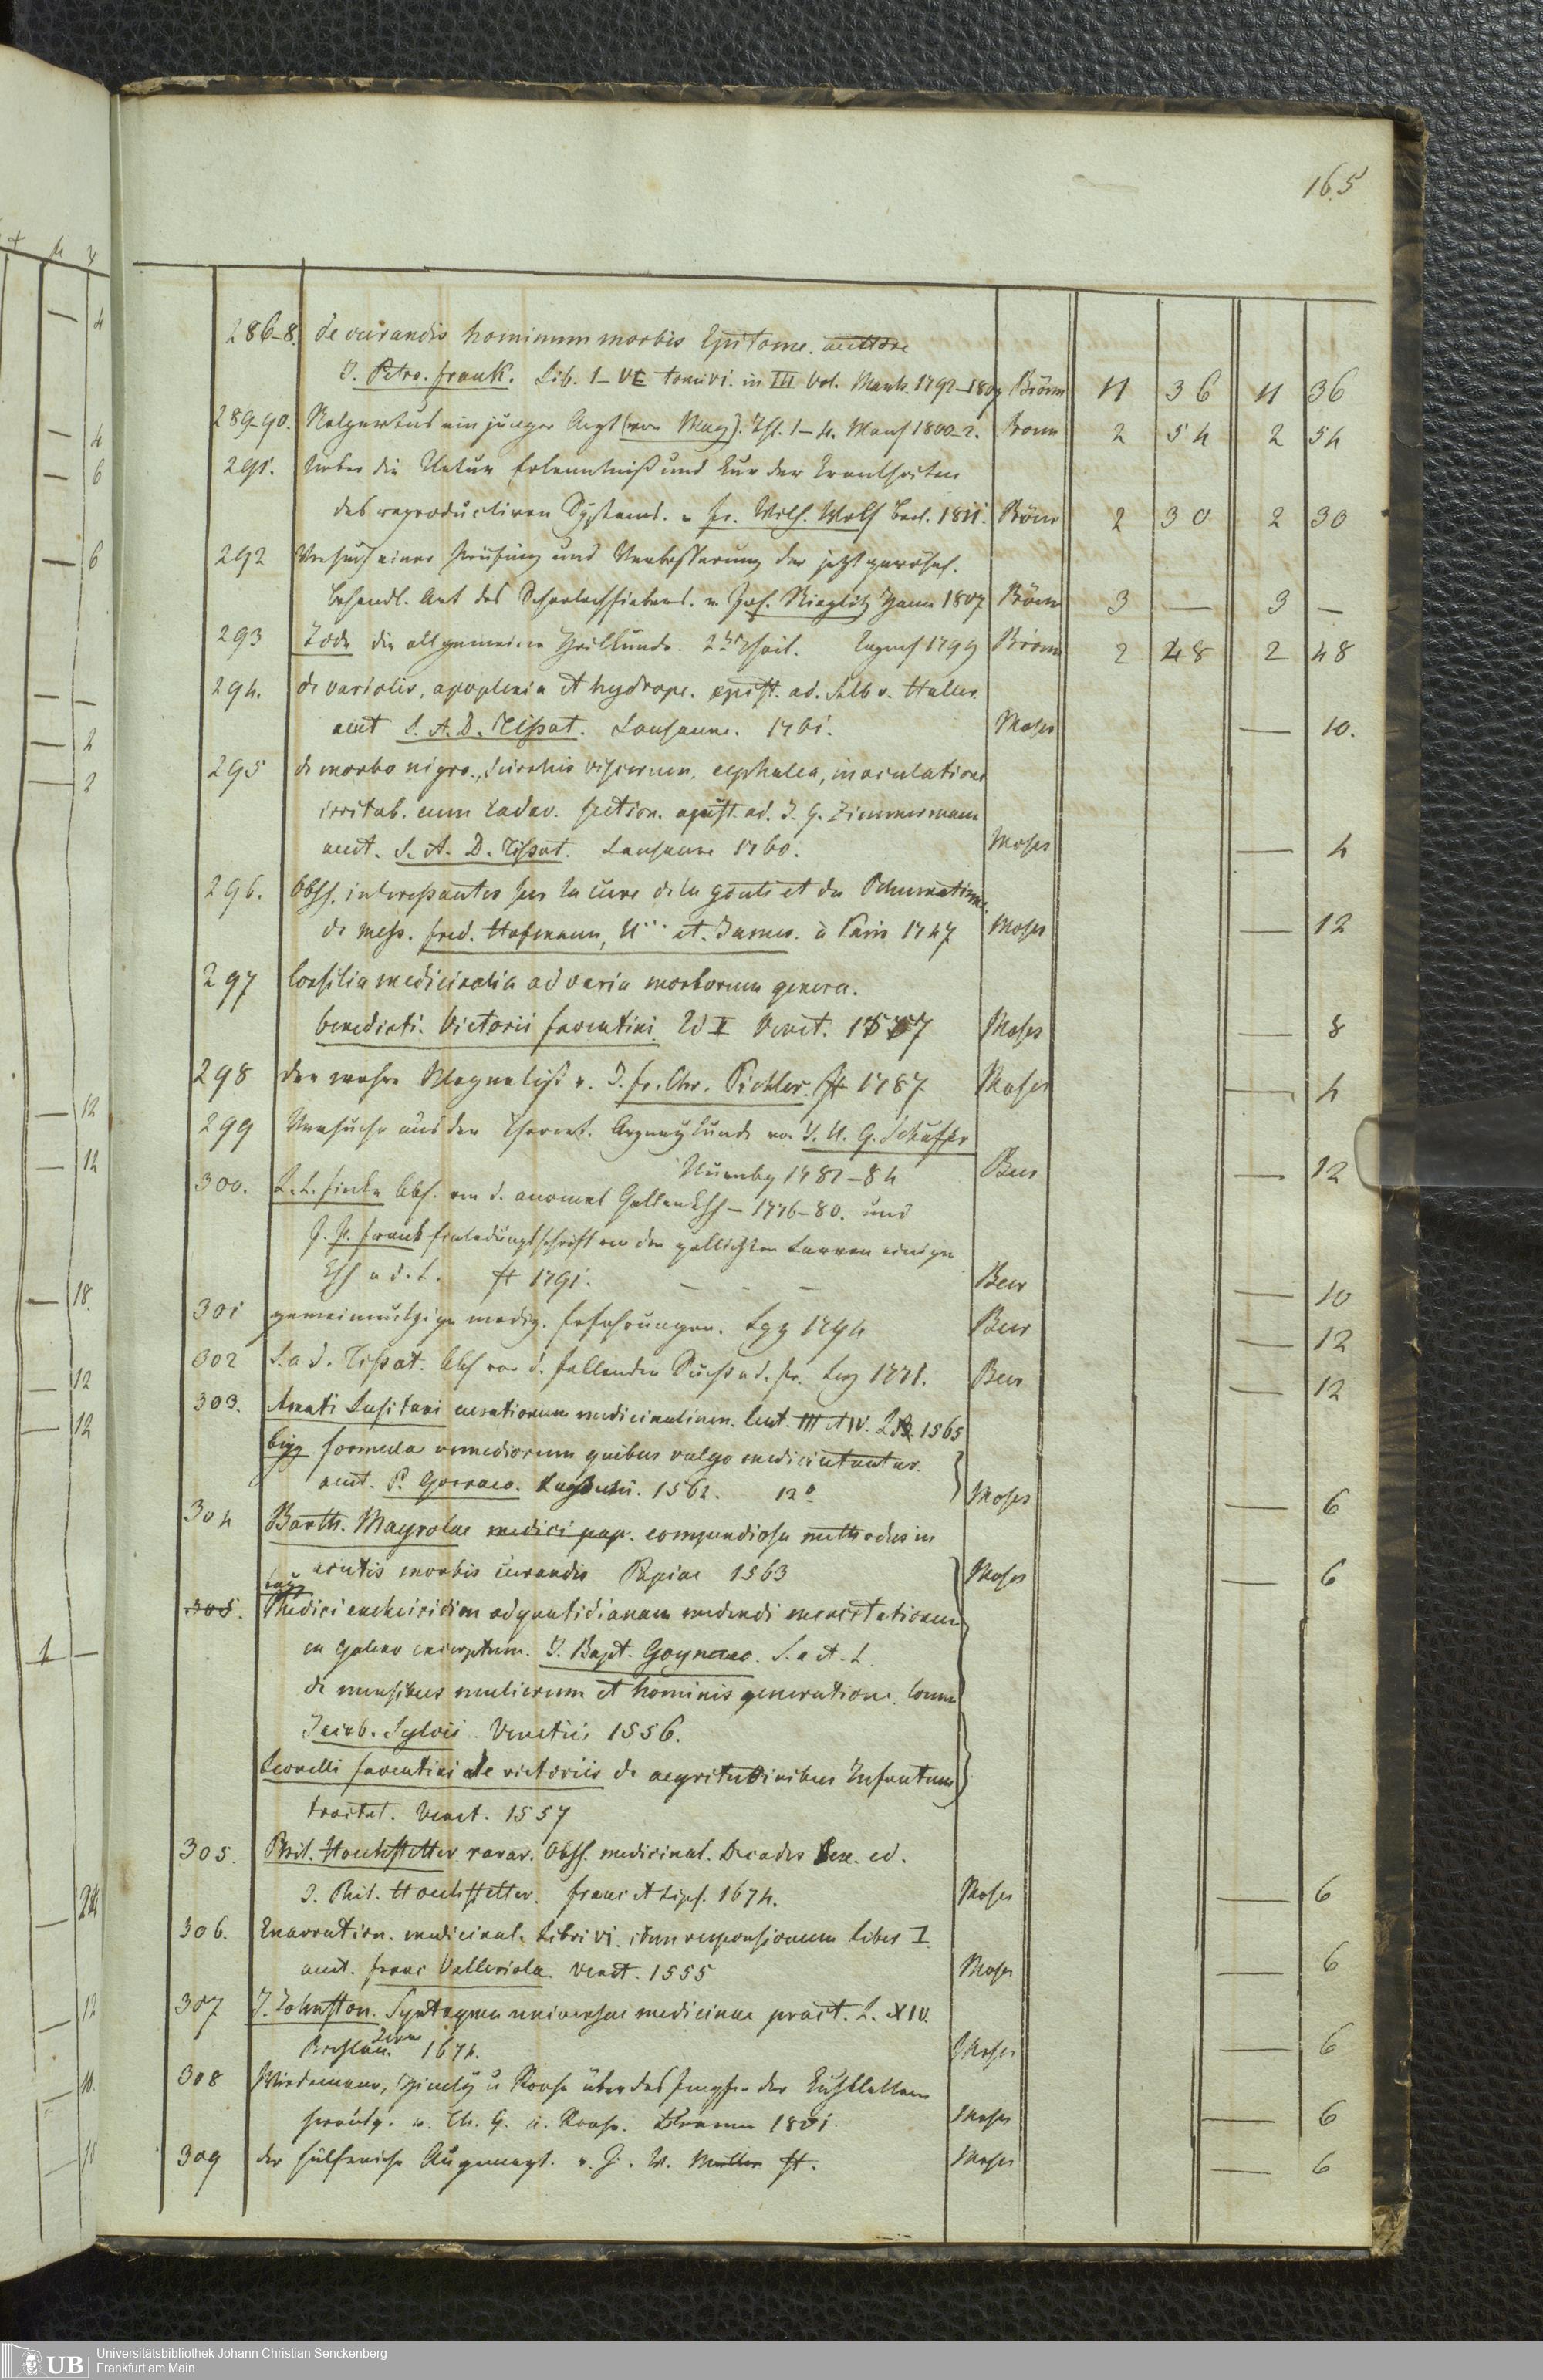 165
286–8. de curandis hominum morbis Epitome. auctore
J. Petro. Frank. Lib. I–VI tomi vi. in III Vol. Manh. 1792–1807 Brönn 11 36 11 36
289–90. ein junger Arzt (von May). Th. 1–4. Manh 1800–2. Bronn 2 54 2 54
291. Ueber die Natur Erkenntniß und Cur der Krankheiten
des reproductiven Systems. v Fr. Wilh. Wolf Berl. 1811. Brönn 2 30 2 30
292 Versuch einer Prüfung und Verbesserung der jetzt gewöhnl.
Behandl. Art des Scharlachfiebers. v. Joh. Stieglitz Hann 1807 Brönn 3 — 3 —
293 Tode die allgemeine Heilkunde. 2ter Theil. Copenh 1799 Brönn 2 48 2 48
294. de variolis, apoplexia et hydrope. epist. ad. Alb v. Haller
aut S. A. D. Tissot. Lausanne. 1761. Moses — 10.
295 de morbo nigro, scirrhis viscerum, cephalea, inoculatione
irritab. cum cadav. section. epist. ad. J. G. Zimmermann
auct. S. A. D. Tissot. Lausanne 1760. Moses — 4
296. Obss. interessantes sur la cure de la goute et du Rhumatisme
de mess. Fred. Hofmann, U... et. James. à Paris 1747 Moses — 12
297 Consilia medicinalia ad varia morborum genera.
benedicti. Victorii faventini. Ed II Venet. 1557 Moses — 8
298 der wahre Magnetist v. J. Fr. Chr. Pichler. ft 1787 Moses — 4
299 Versuche aus der theoret. Arzneykunde von J. U. G. Schäffer
Nürnbg 1782–84 Beer — 12
300. L. L. Finke Abh. von d. anomal Gallenkkh – 1776–80. und
J. P. Frank Einladungsschrift von den gallichten Larven einiger
Kkh a d. L. ft 1791. – – – Beer — 10
301 gemeinnützige mediz. Erfahrungen. Lpz 1794 Beer — 12
302 S. a d. Tissot. Abh von d. fallenden Sucht a d. fr. Lpz 1771. Beer — 12
303. Amati Lusitani curationum medicinalium. Cent. III et IV. LB. 1565
beig formulae remediorum quibus vulgo medici utuntur.
auct. P. Gorraeo. Lugduni. 1562. 12° Moses — 6
304 Barth. Maysolae medici pap. compendiosa methodus in
acutis morbis curandis Papiae 1563 Moses — 6
beig
305. Medici encheiridion ad quotidianam medendi exercitationem
ex galeno excerptum. J. Bapt. Goyneao. S. a et. L.
de mensibus mulierum et hominis generatione. Comm
Jacob. Sylvii. Venetiis 1556.
Leonelli faventini de victoriis de aegritudinibus Infantum
tractat. Venet. 1557
305. Phil. Hoechstetter. rarar. Obss. medicinal. Decades sex. ed.
J. Phil. Hoechstetter. franc et Lips. 1674. Moses — 6
306. Enarration. medicinal. Libri vi. item responsionum Liber I.
auct. Franc Valleriola. Venet. 1555 Moses — 6
307 J. Johnston. Syntagma universae medicinae pract. L. XIV.
Breslau. 1674. Moses — 6
308 Wiedemann, Himly u Roose über das Impfen der Kuhblattern
herausg. v. Th. G. A. Roose. Bremen 1801 Moses — 6
309 der hülfreiche Augenarzt. v. J. W. Müller ft. Moses — 6
Universitätsbibliothek Johann Christian Senckenberg
Frankfurt am Main
UB